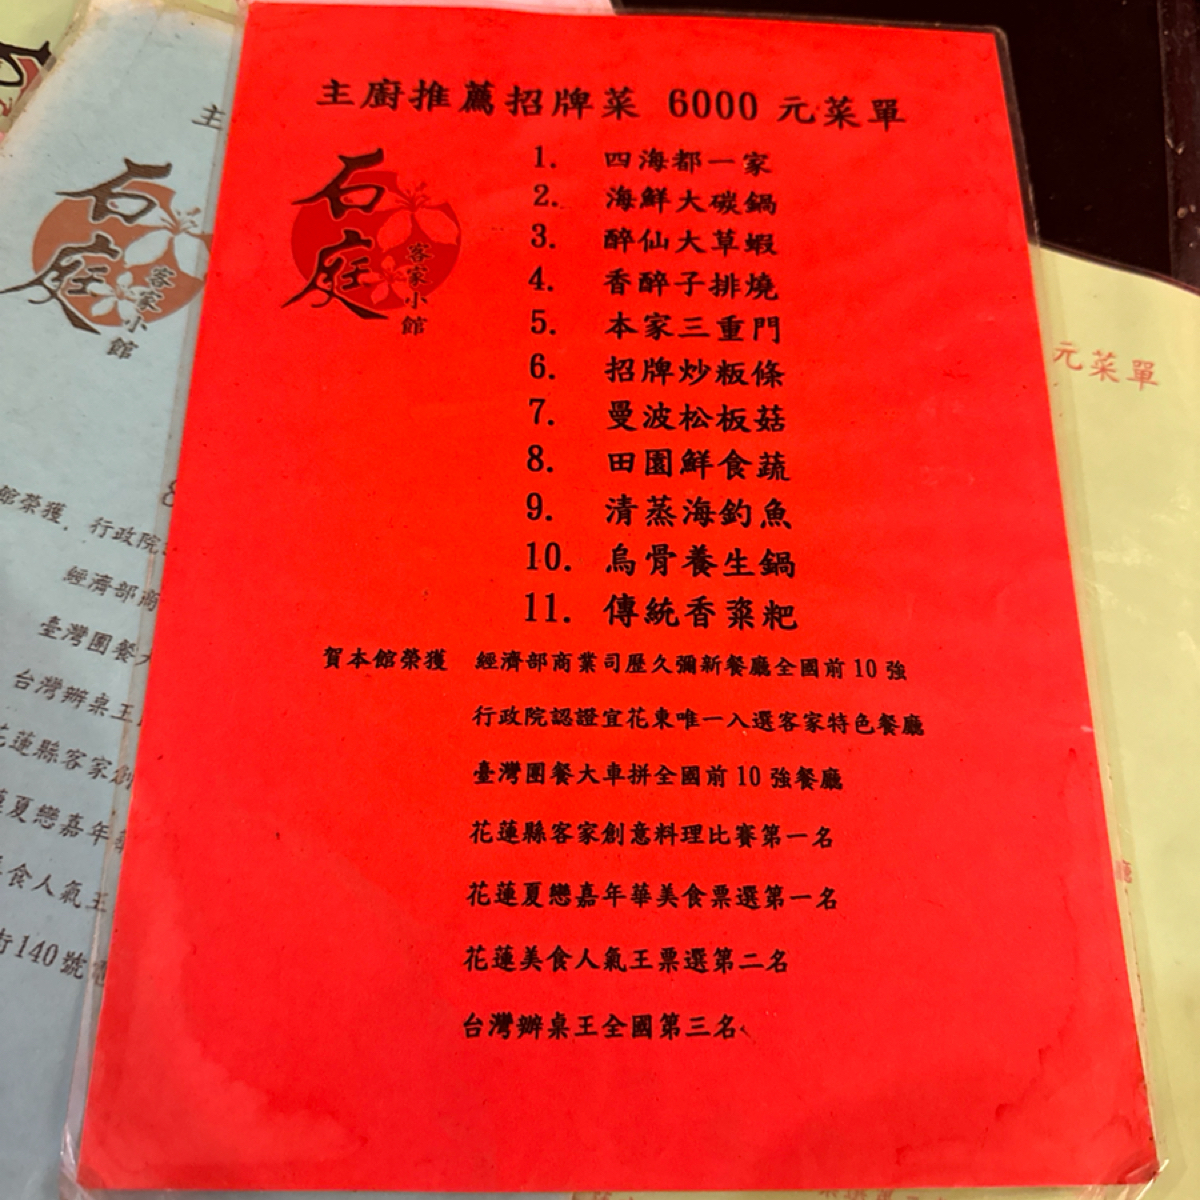 主廚推薦招牌菜 6000 元菜單
石庭
客家小館
1. 四海都一家
2. 海鮮大碳鍋
3. 醉仙大草蝦
4. 香醉子排燒
5. 本家三重門
6. 招牌炒粄條
7. 曼波松板菇
8. 田園鮮食蔬
9. 清蒸海釣魚
10. 烏骨養生鍋
11. 傳統香粢粑
賀本館榮獲 經濟部商業司歷久彌新餐廳全國前 10 強
行政院認證宜花東唯一入選客家特色餐廳
臺灣團餐大車拼全國前 10 強餐廳
花蓮縣客家創意料理比賽第一名
花蓮夏戀嘉年華美食票選第一名
花蓮美食人氣王票選第二名
台灣辦桌王全國第三名
主
石庭
客家小館
館榮獲，行政院
經濟部商
臺灣團餐
台灣辦桌王
花蓮縣客家創
蓮夏戀嘉年華
食人氣王
街140號電
元菜單
廳